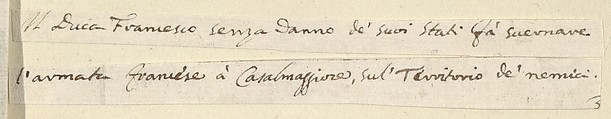 Il Duca Francesco senza danno de' suoi Stati fà suernare
l'armata francése à Casalmaggiore, sul' Territorio de' nemici.